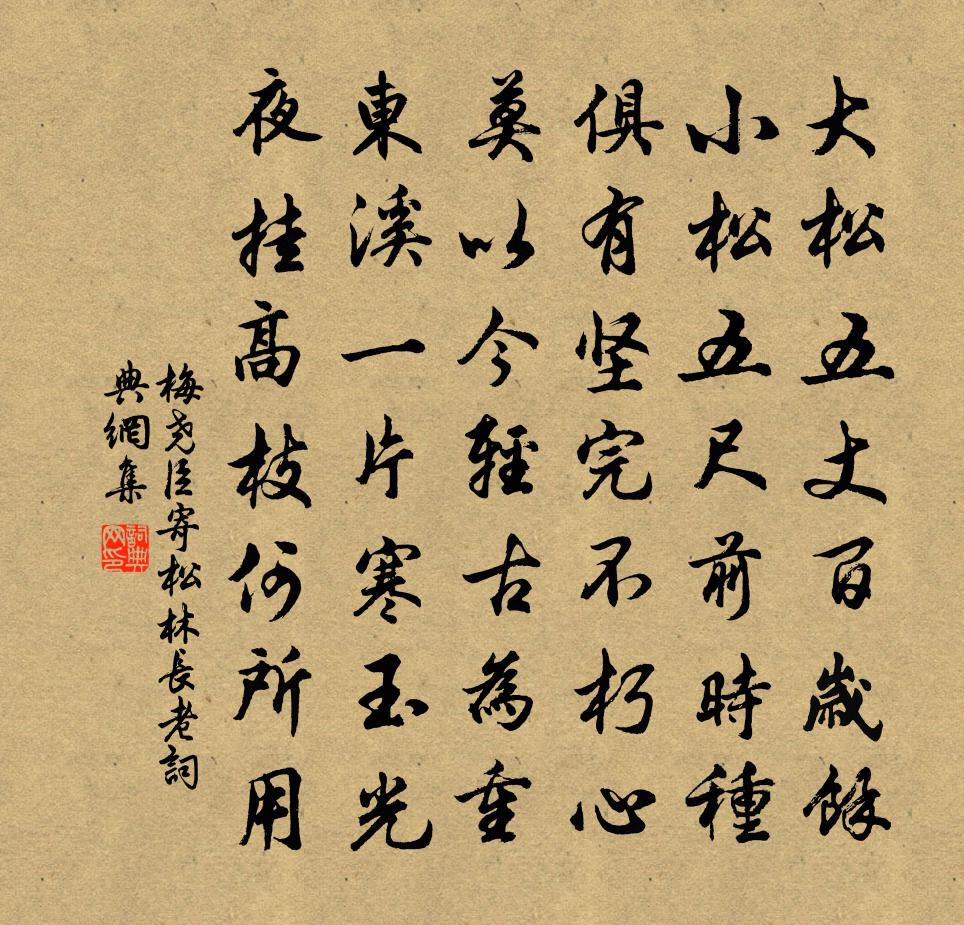 大松五丈百歲餘
小松五尺前時種
俱有坚完不朽心
莫以今輕古為重
東溪一片寒玉光
夜挂高枝何所用
梅尧臣寄松林長老詞
典網集
詞典网印